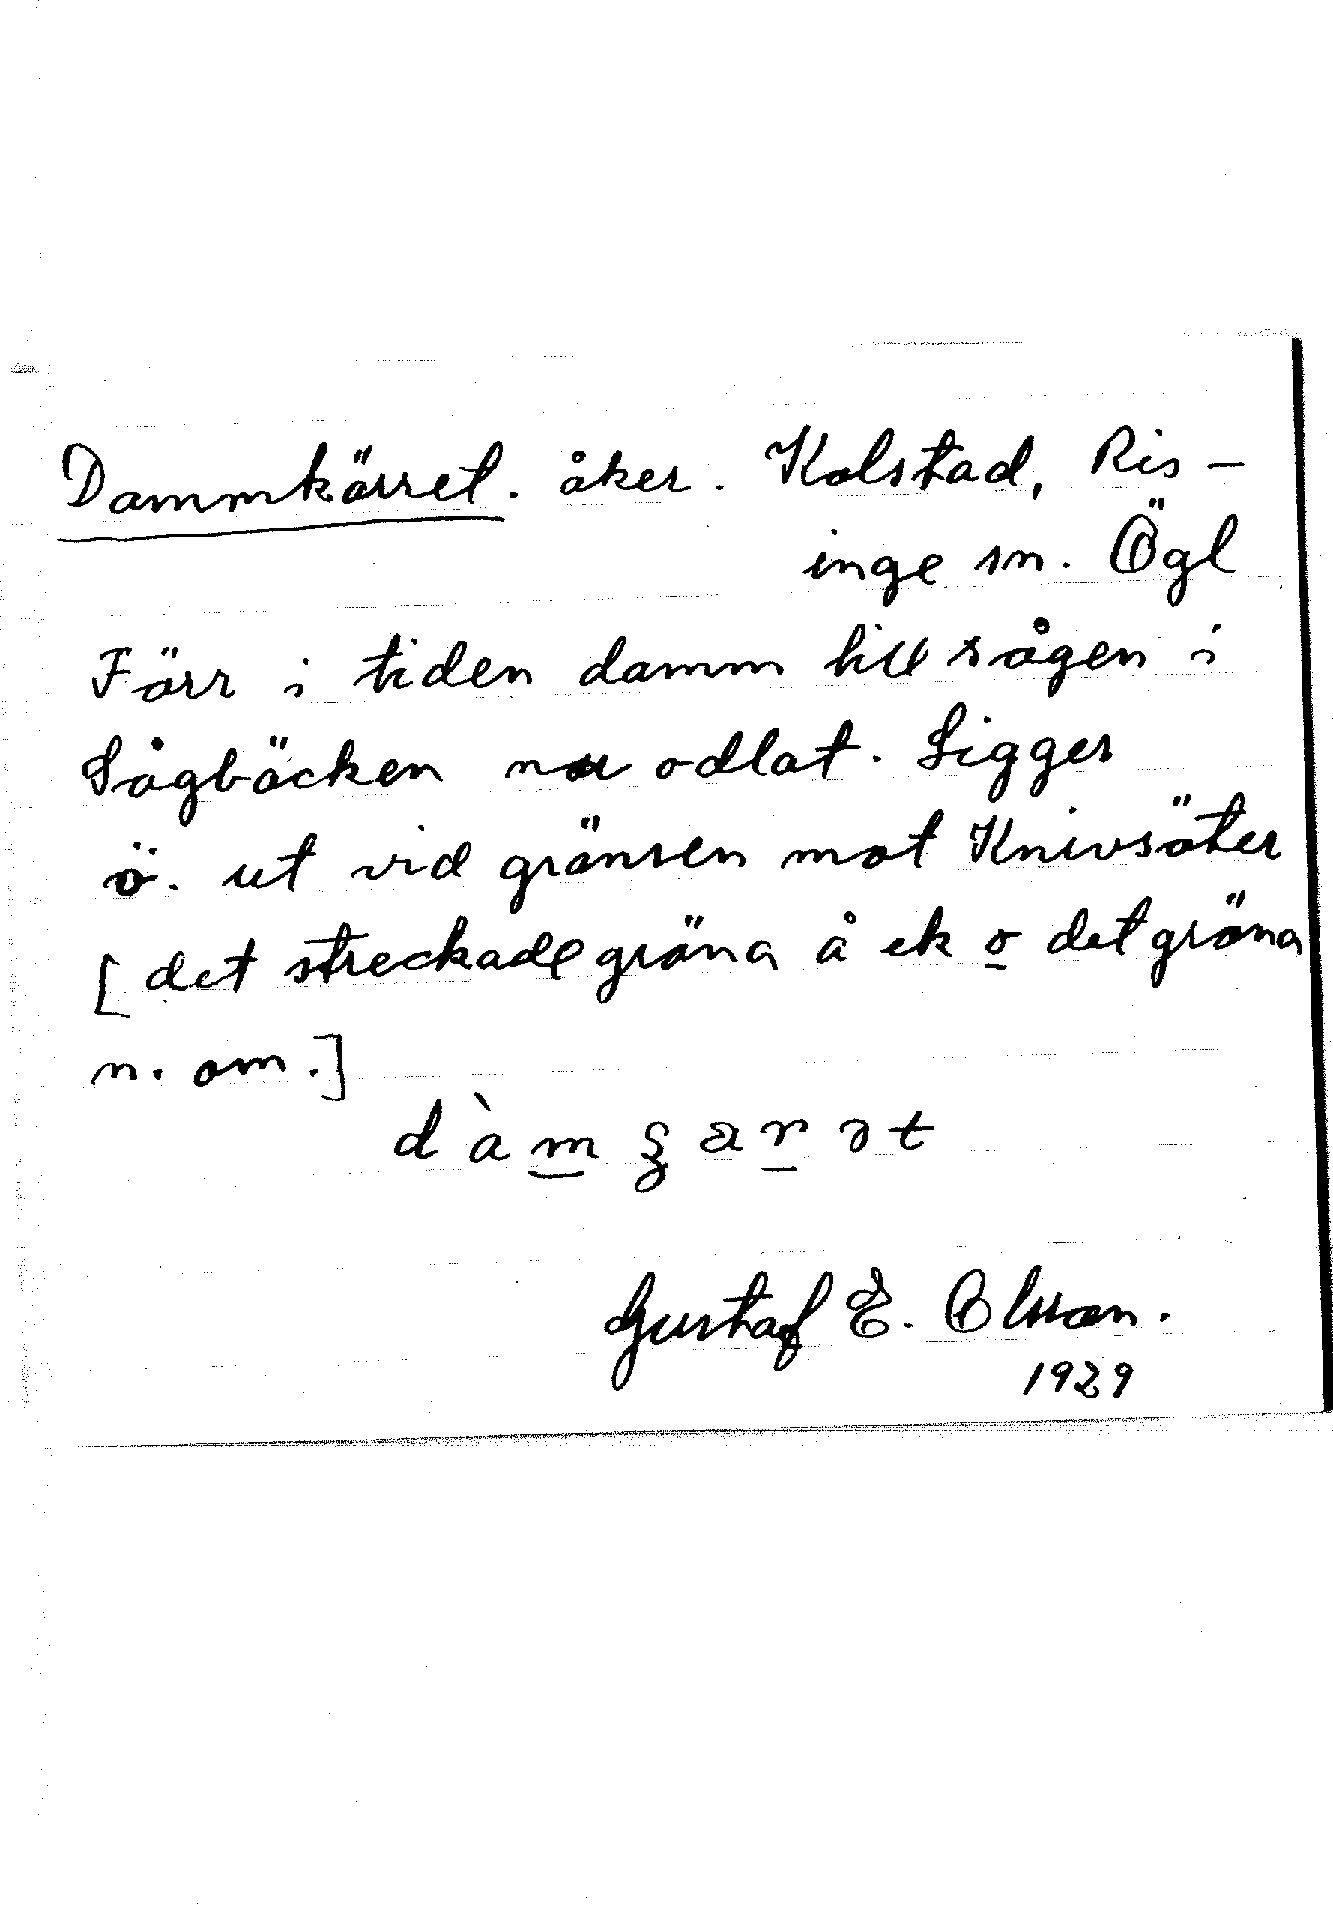 Dammkärret. åker. Kolstad, Ris-
inge sn. Ögl
Förr i tiden damm till sågen i
Sågbäcken nu odlat. Ligger
ö. ut vid gränsen mot Knivsäter
[det streckade gröna å ek o det gröna
n. om.]
Gustaf E. Olsson.
1929